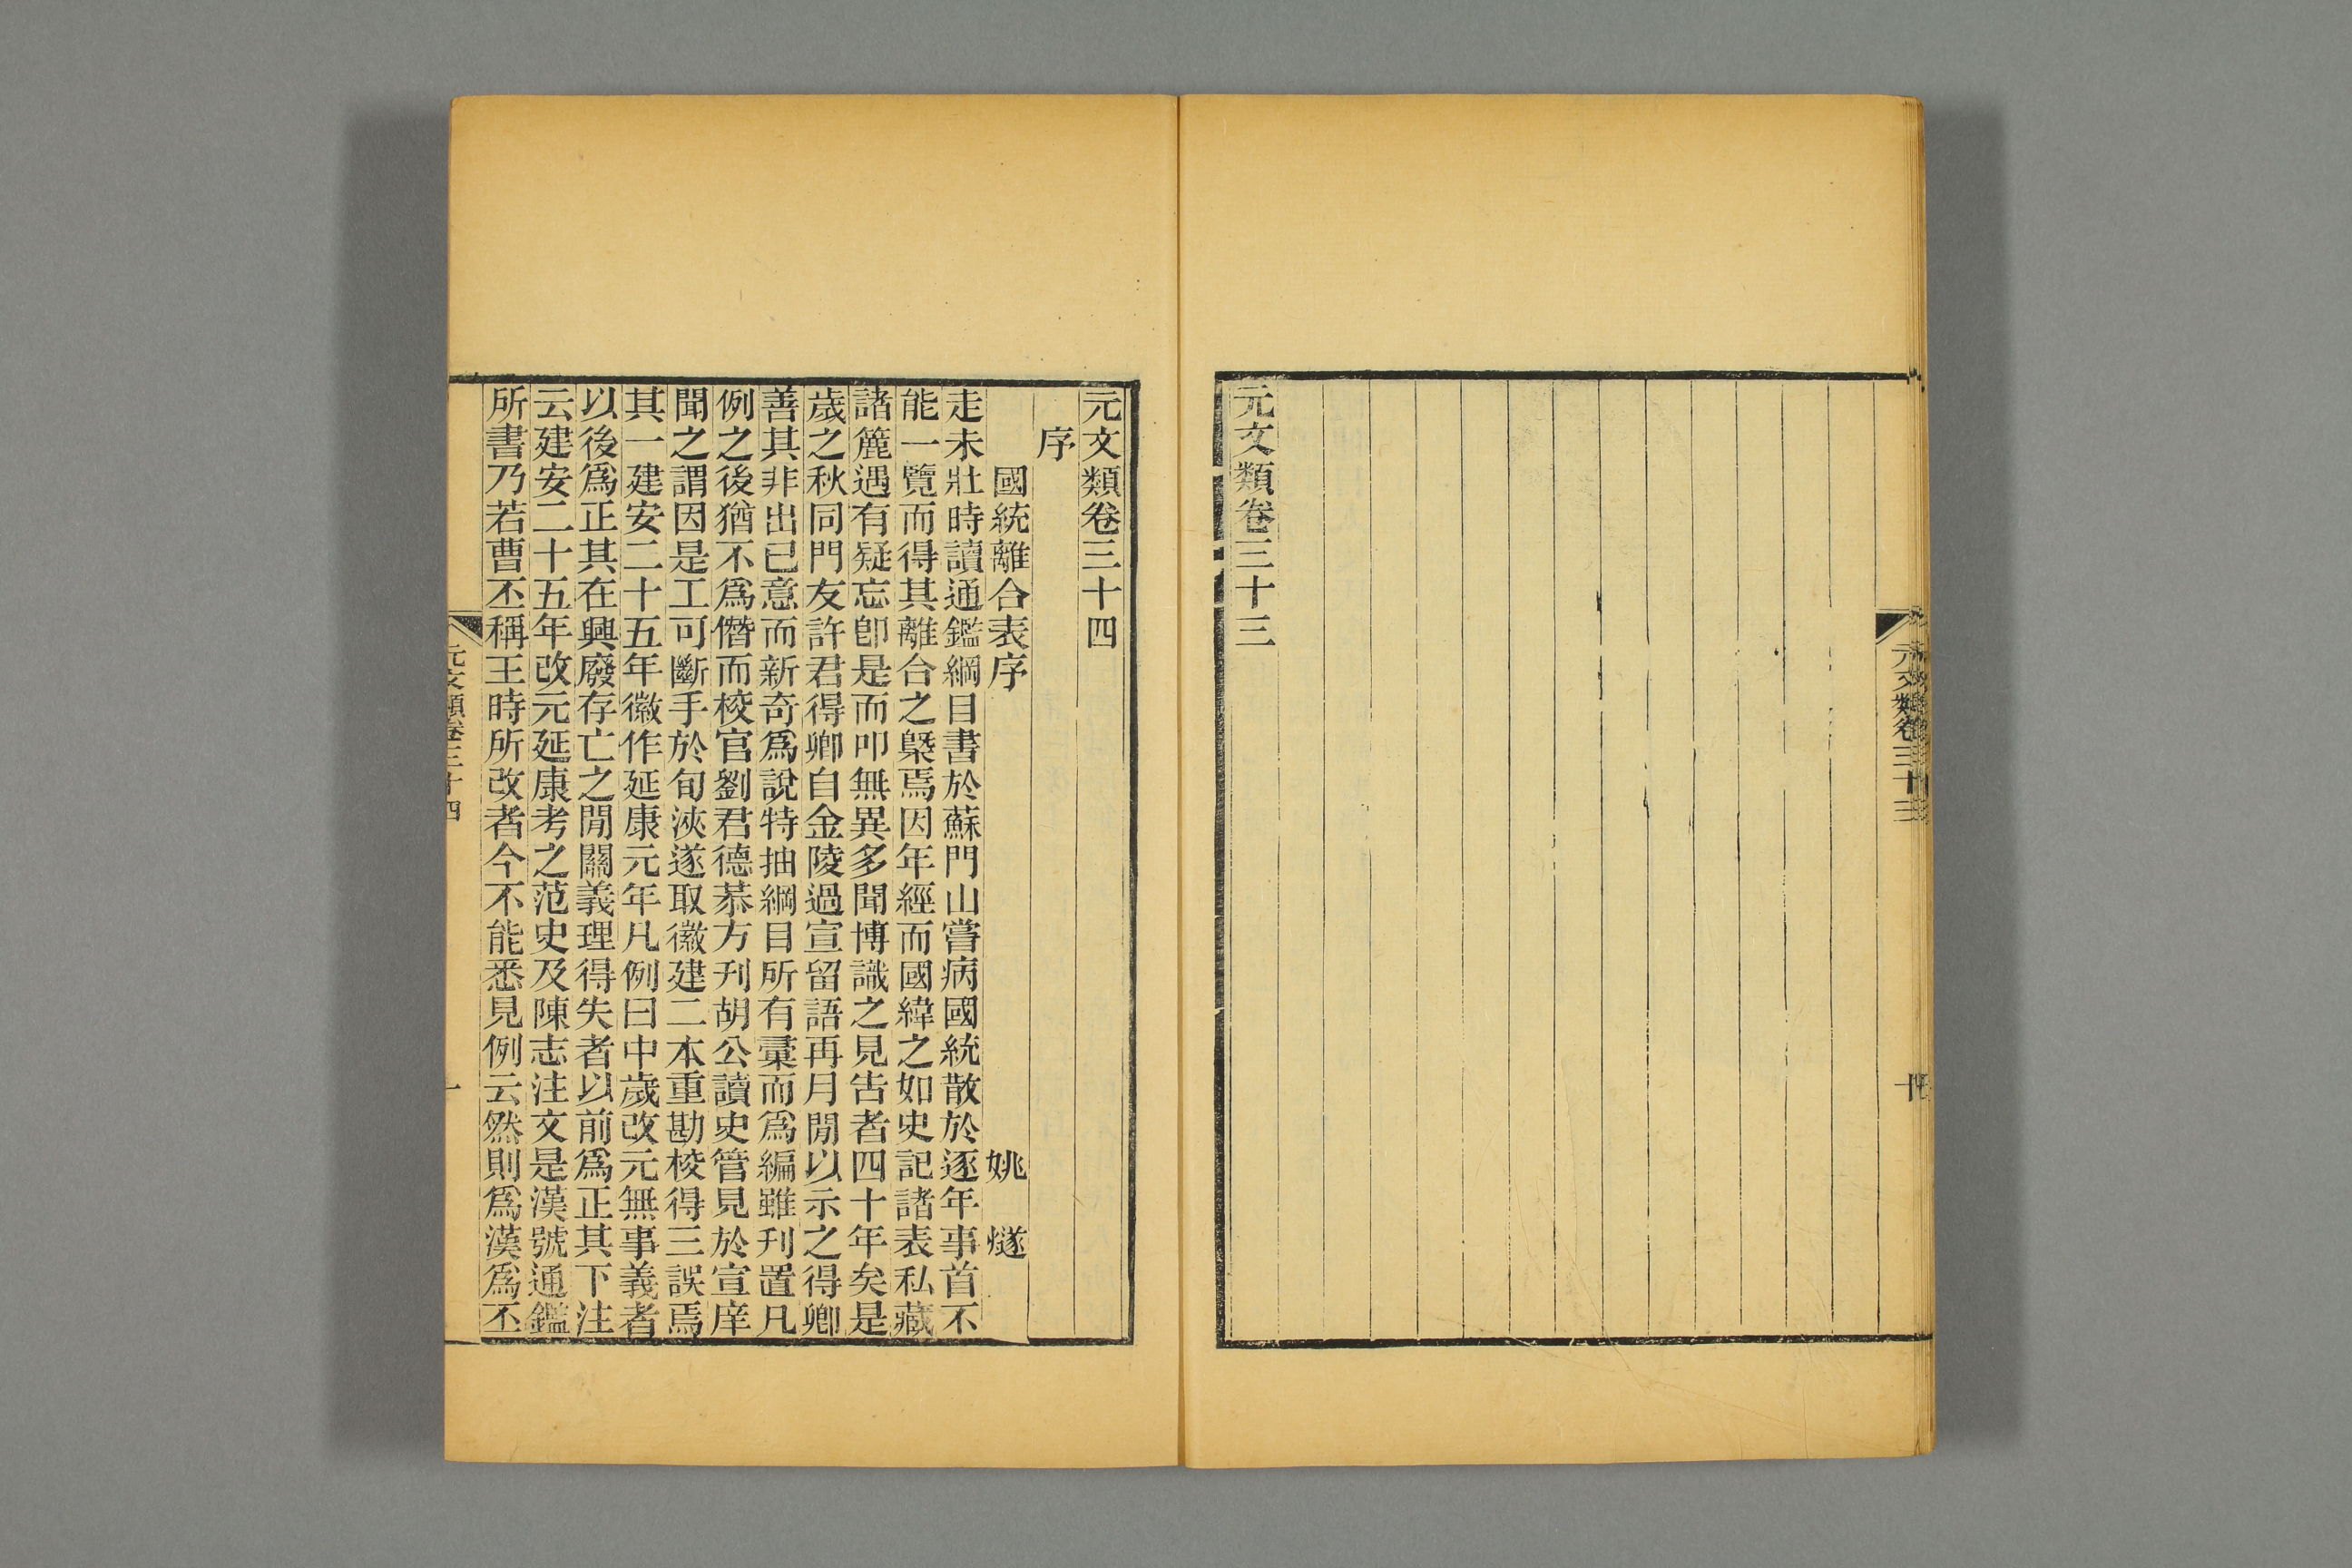 元文類卷三十三
元文類卷三十三
元文類卷三十四
序
國統離合表序 姚燧
走未壯時讀通鑑綱目書於蘇門山嘗病國統散於逐年事首不
能一覽而得其離合之槩焉因年經而國緯之如史記諸表私藏
諸簏遇有疑忘卽是而叩無異多聞博識之見告者四十年矣是
歲之秋同門友許君得卿自金陵過宣留語再月閒以示之得卿
善其非出已意而新奇爲說特抽綱目所有彙而爲編雖刋置凡
例之後猶不爲僭而校官劉君德恭方刋胡公讀史管見於宣庠
聞之謂因是工可斷手於旬浹遂取徽建二本重勘校得三誤焉
其一建安二十五年徽作延康元年凡例曰中歲改元無事義者
以後爲正其在興廢存亡之閒關義理得失者以前爲正其下注
云建安二十五年改元延康考之范史及陳志注文是漢號通鑑
所書乃若曹丕稱王時所改者今不能悉見例云然則爲漢爲丕
元文類卷三十四
一